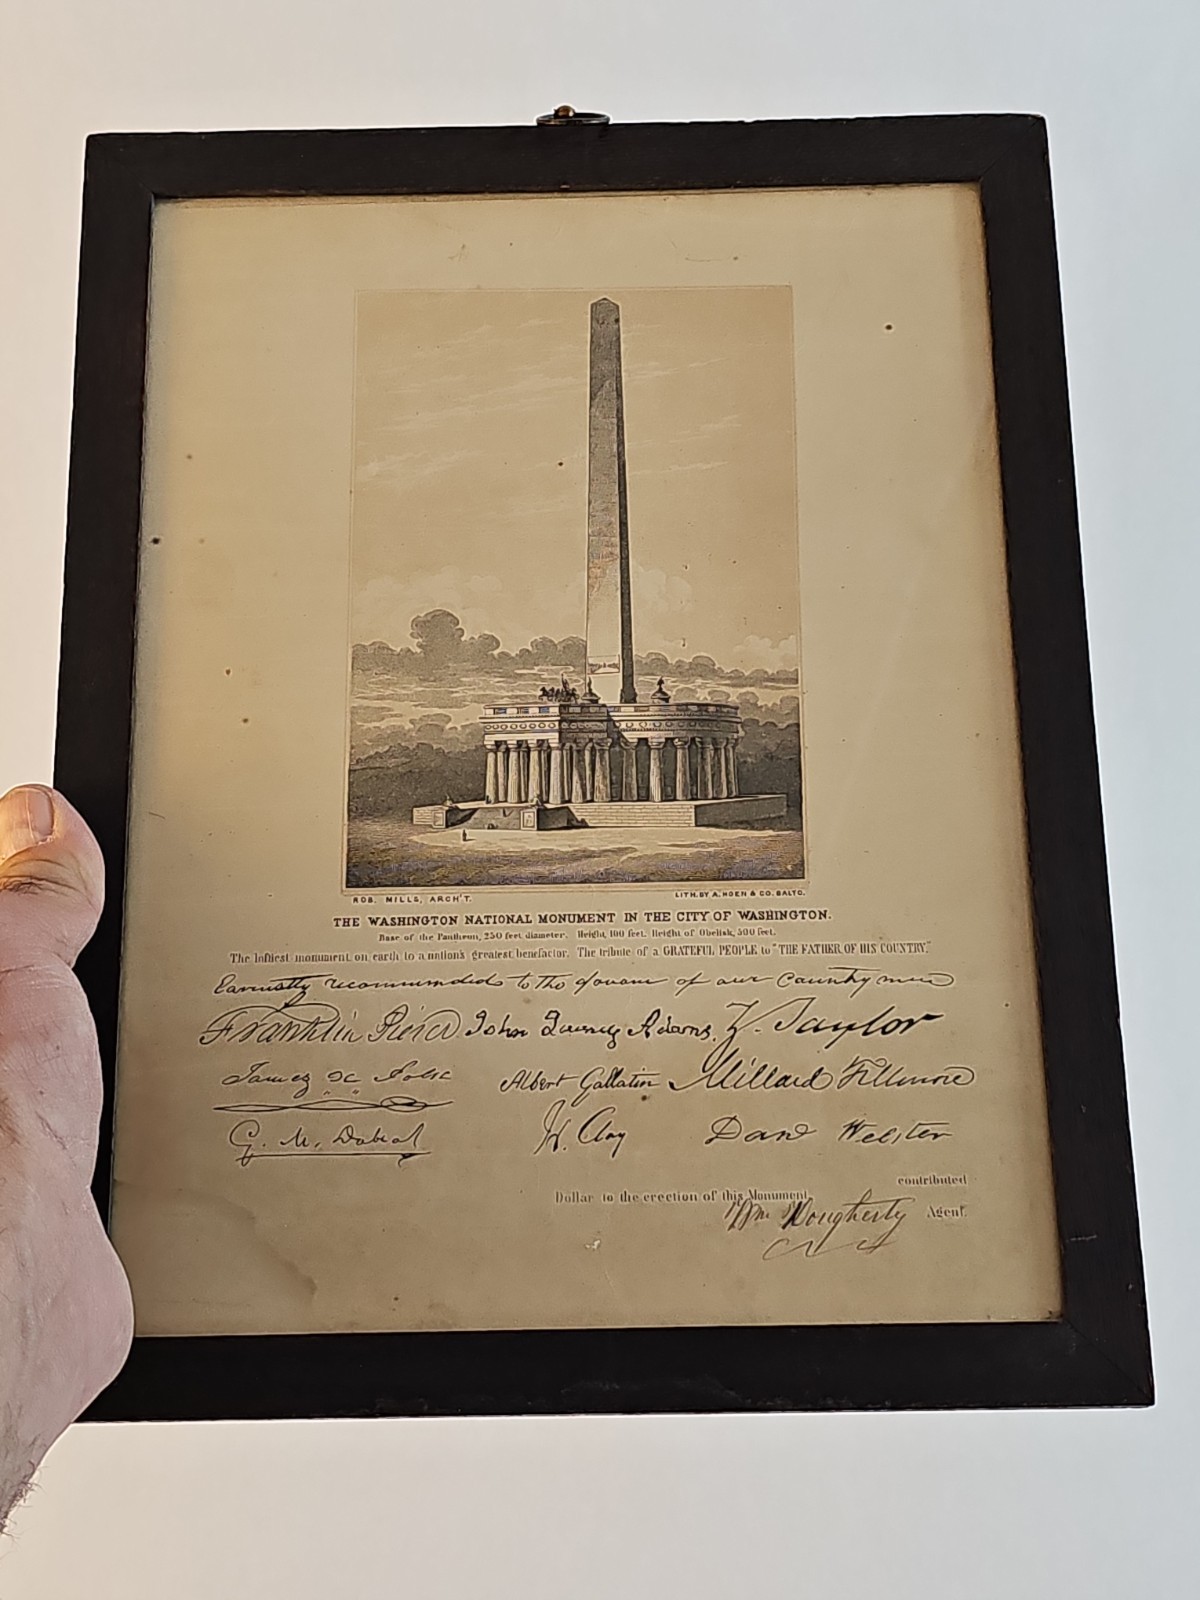 ROB. MILLS, ARCH'T.
LITH. BY A. HOEN & CO. BALTO.
THE WASHINGTON NATIONAL MONUMENT IN THE CITY OF WASHINGTON.
Base of the Pantheon, 250 feet diameter. Height, 100 feet. Height of Obelisk, 500 feet.
The loftiest monument on earth to a nation's greatest benefactor. The tribute of a GRATEFUL PEOPLE to "THE FATHER OF HIS COUNTRY."
Earnestly recommended to the favour of our Countrymen
Franklin Pierce John Quincy Adams. Z. Taylor
James K Polk Albert Gallatin Millard Fillmore
G. M. Dallas H. Clay Danl Webster
contributed
Dollar to the erection of this Monument.
Wm Dougherty Agent.